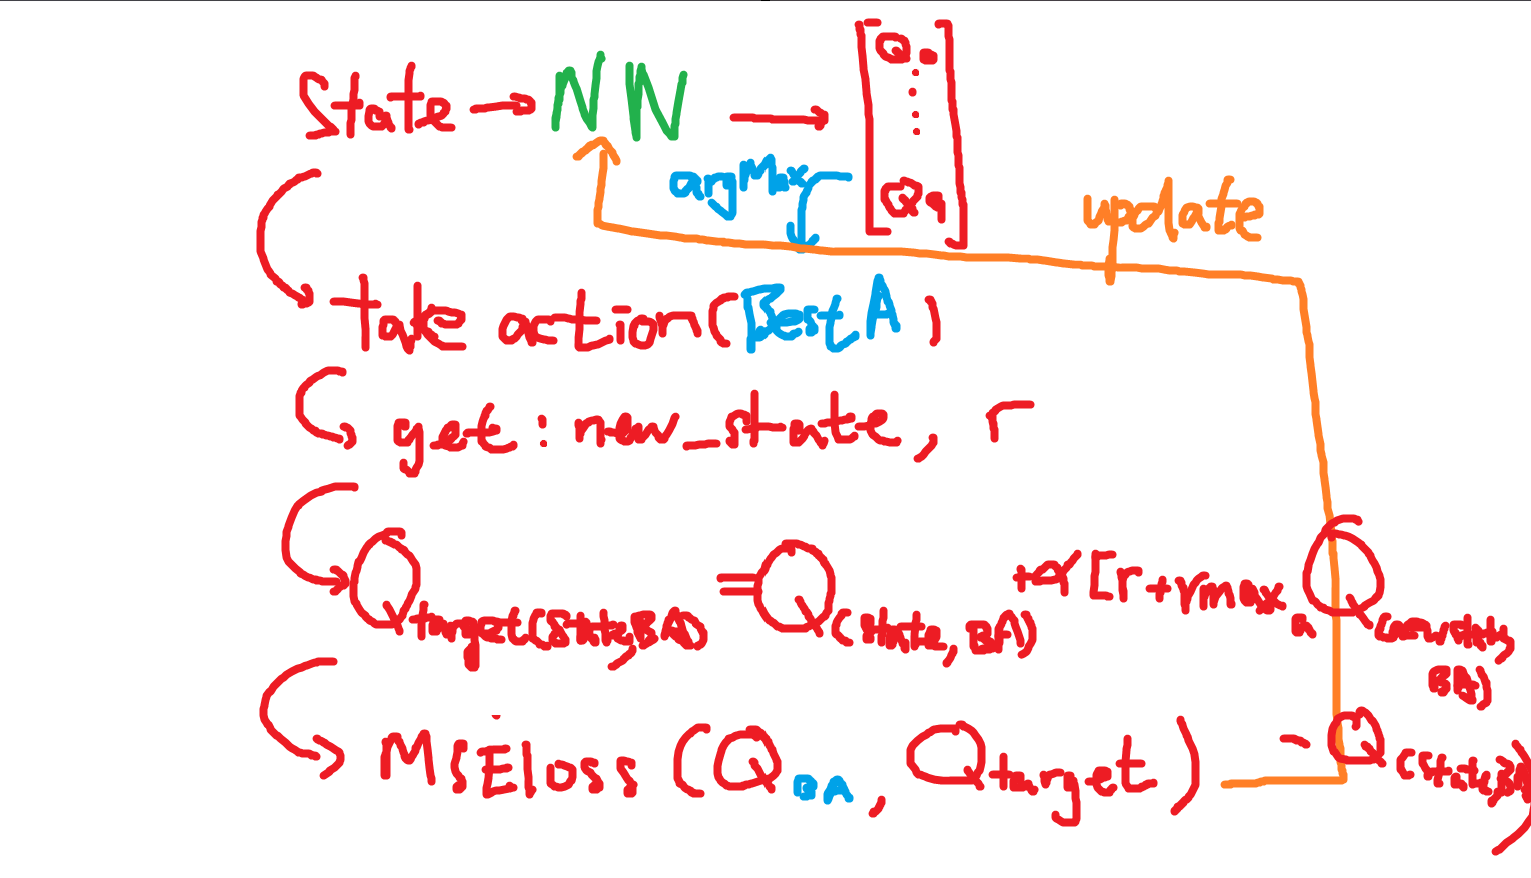 State → NN → [Q₀
⋮
Q₉]
argMax
update
take action(Best A)
get: new_state, r
Q target(State,BA) = Q (state, BA) +α[r+γmax a Q (new state,
BA)
MSEloss (Q BA, Q target) - Q (state,BA)
)